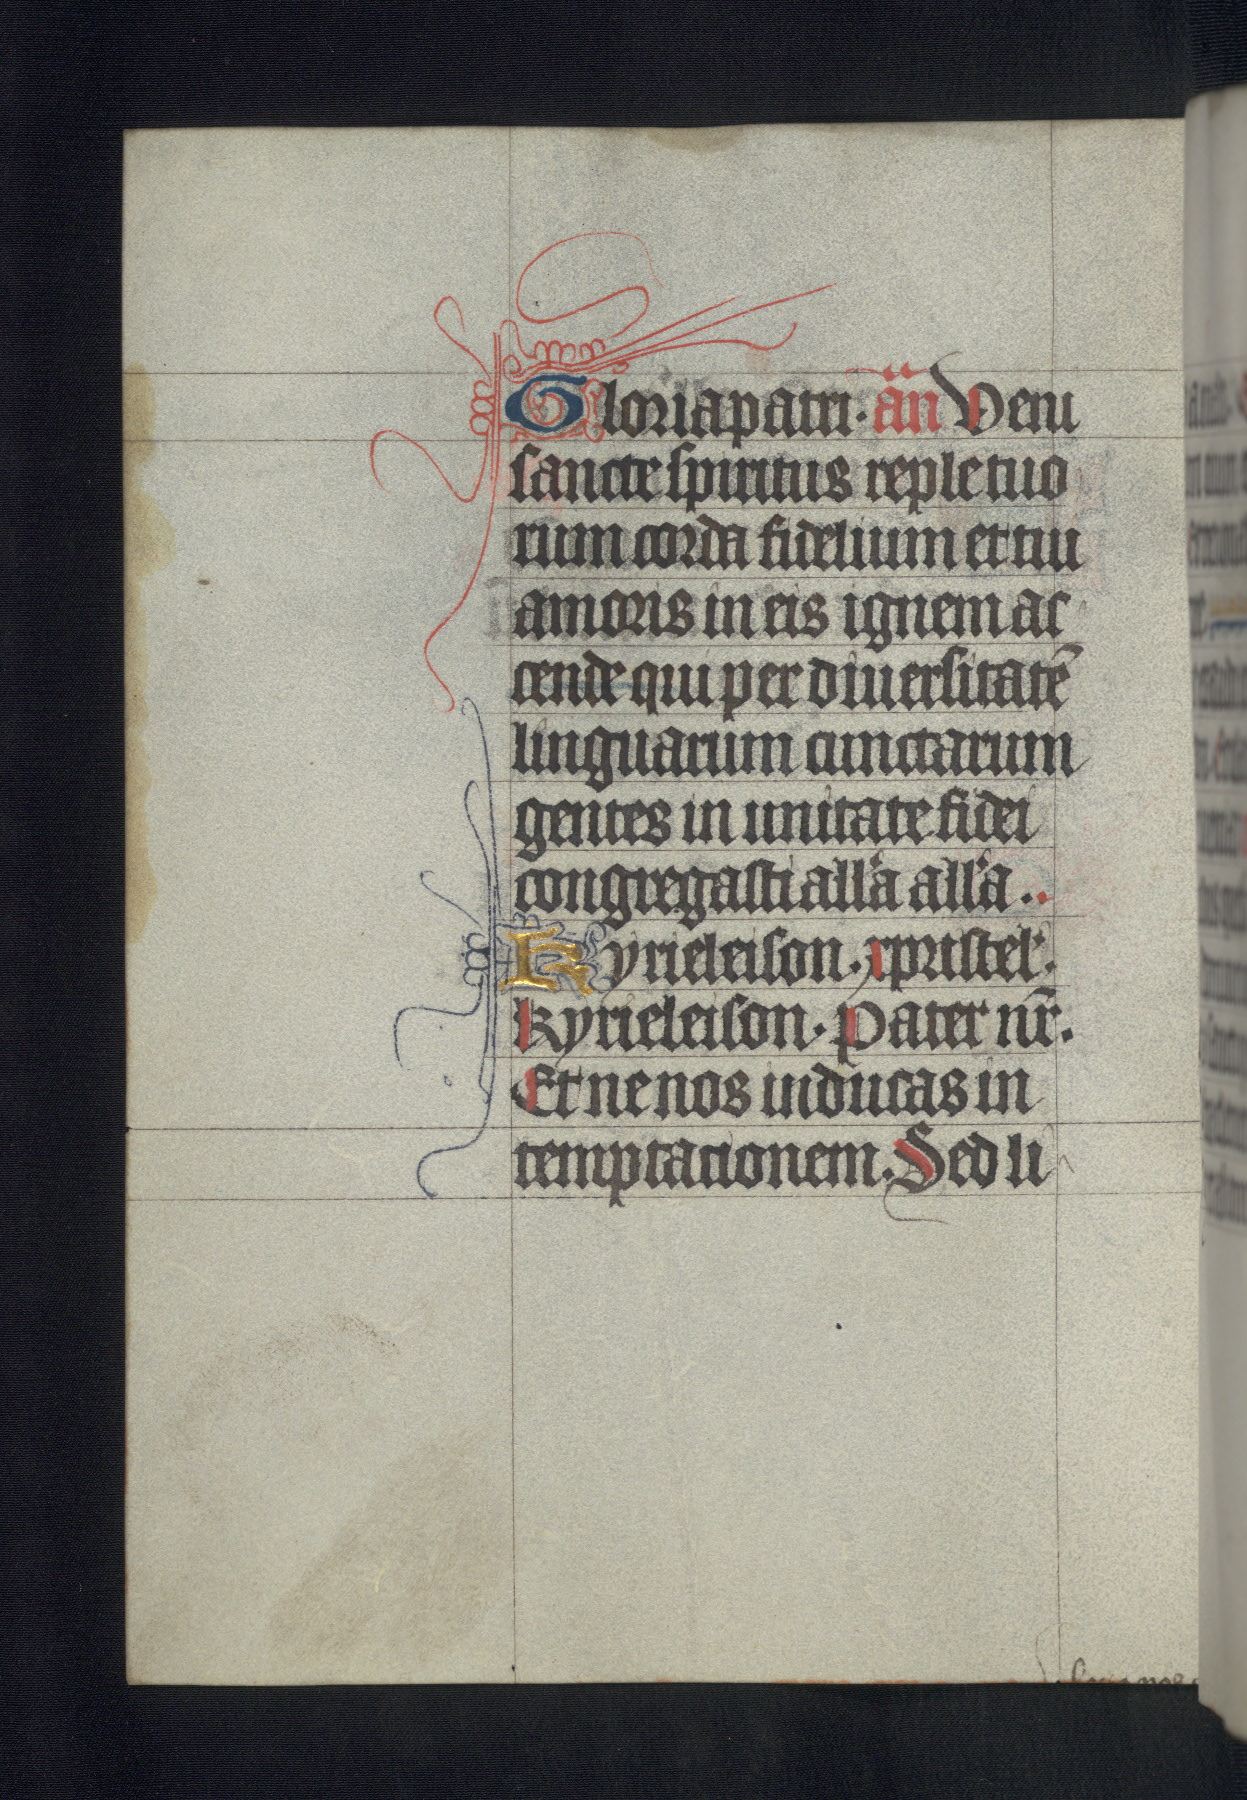 Gloria patri · an̄ Veni
sancte spiritus reple tuo
rum corda fidelium et tui
amoris in eis ignem ac
cende qui per diuersitatē
linguarum cunctarum
gentes in unitate fidei
congregasti all'a all'a..
Kyrieleison. xpristel'.
kyrieleison. Pater nr̄.
Et ne nos inducas in
temptationem. Sed li